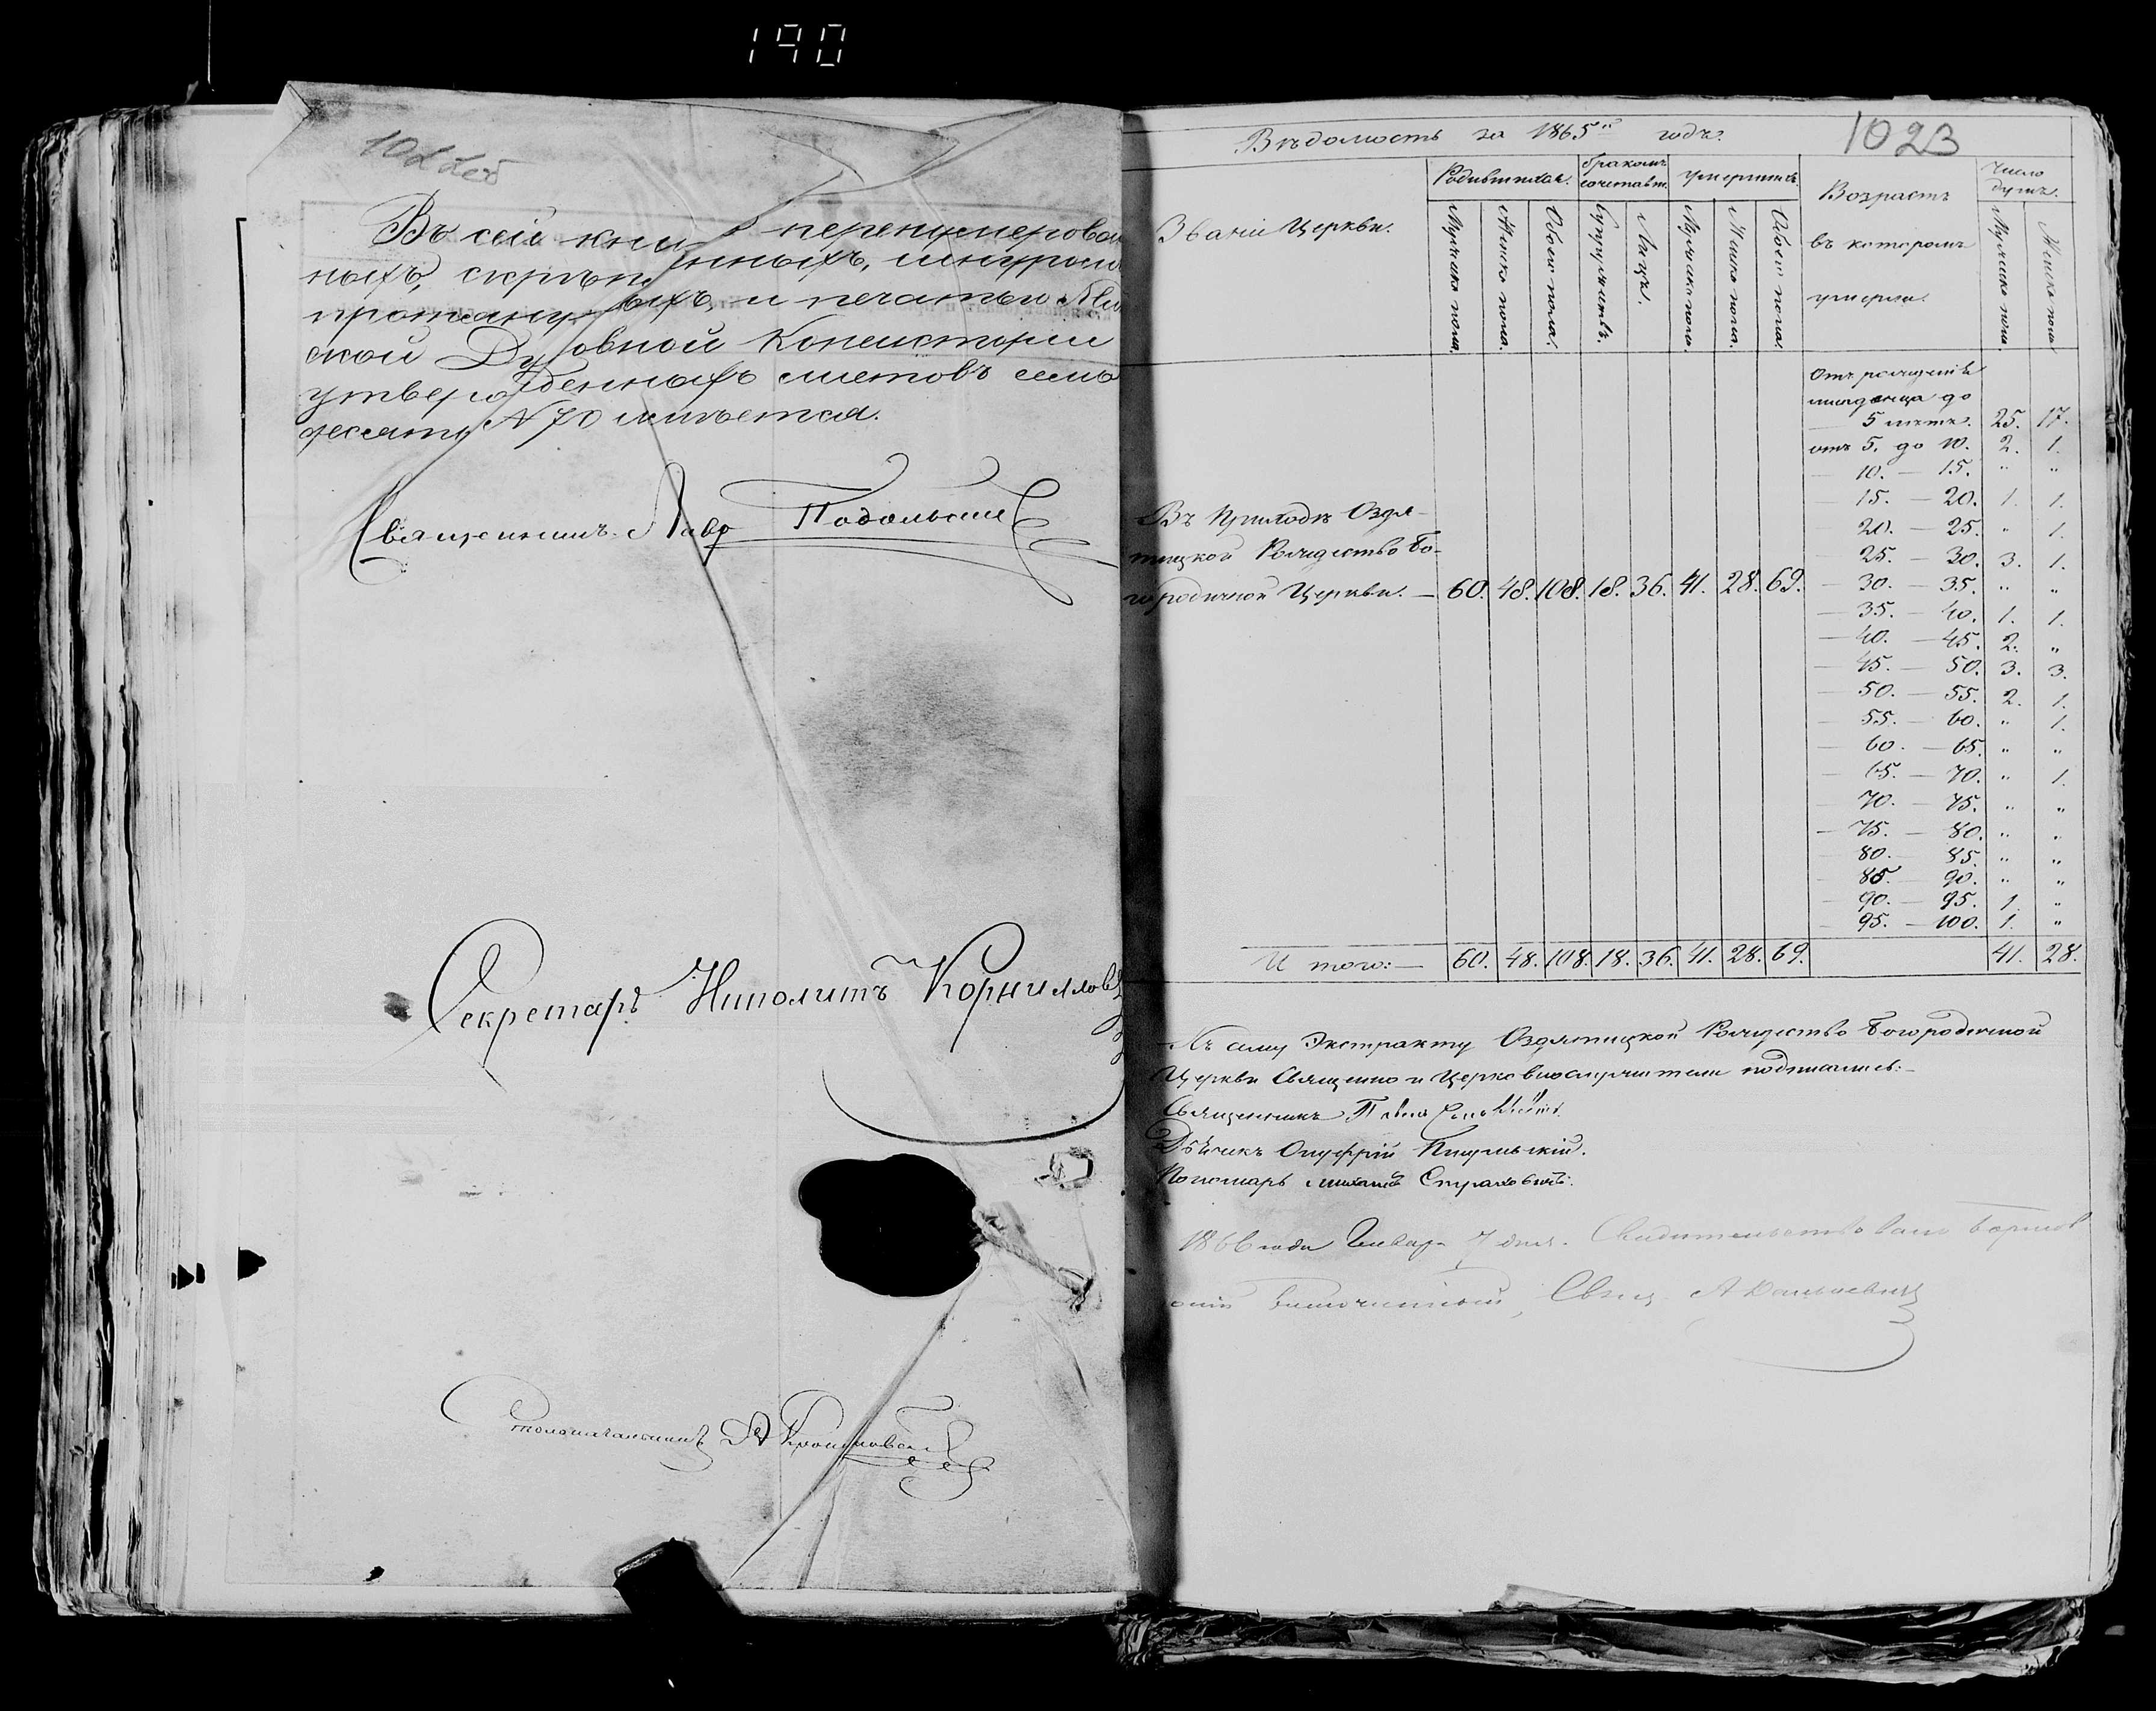 190
Въ сей кни перенумерован
ныхъ, скрѣп нныхъ, шнуром
ыхъ, и печатью Мин
ской Духовной Консисторіи
утвержденныхъ листовъ семь
десятъ N 70 имѣется.
Священникъ Подольскій
Секретарь Иполитъ Корниллов
Столоначальникъ
Вѣдомость за 1865й годъ.
1023
Званіе Церкви.
Родившихся.
бракомъ сочетавш.
умершихъ.
Возрастъ
въ которомъ
умерли.
Число
душъ.
Мужеска пола.
Женска пола.
Обоего пола.
Супружествъ.
Лицъ.
Мужеска пола.
Женска пола.
Обоего пола.
Мужеска пола.
Женска пола
Отъ рожденія
младенца до
5 лѣтъ. 25. 17.
отъ 5. до 10. 2. 1.
— 10. — 15. " "
— 15. — 20. 1. 1.
— 20. — 25. " 1.
— 25. — 30. 3. 1.
— 30. — 35. " "
— 35. — 40. 1. 1.
— 40. — 45. 2. "
— 45. — 50. 3. 3.
— 50. — 55. 2. 1.
— 55. — 60. " 1.
— 60. — 65. " "
— 65. — 70. " 1.
— 70. — 75. " "
— 75. — 80. " "
— 80. — 85. " "
— 85. — 90. " "
— 90. — 95. 1. "
— 95. — 100. 1. "
Въ Приходѣ Оздя-
тицкой Рождество Бо-
городичной Церкви. — 60. 48. 108. 18. 36. 41. 28. 69.
И того: — 60. 48. 108. 18. 36. 41. 28. 69. 41. 28.
Къ сему Экстракту Оздятицкой Рождество Богородичной
Церкви Священно и Церковнослужители подписались:
Священникъ
Дьячекъ Онуфрій
Пономарь Михаилъ
1866 года Январ 7 дня. Свидетельствовалъ Борисов
скій Благочинный, Свящ.